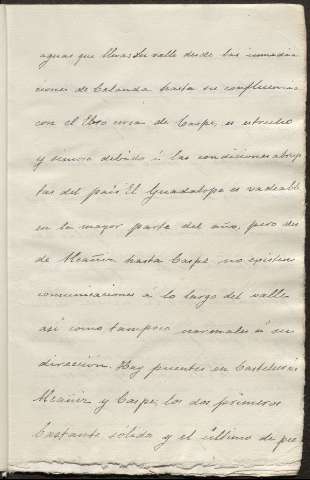 aguas que lleva su valle desde las inmedia
ciones de Calanda hasta su confluencia
con el Ebro cerca de Caspe, es estrecho
y sinuoso debido á las condiciones abrup
tas del pais. El Guadalope es vadeable
en la mayor parte del año, pero des
de Alcañiz hasta Caspe no existen
comunicaciones á lo largo del valle
así como tampoco normales á su
dirección. Hay puentes en Castelserás
Alcañiz y Caspe, los dos primeros
bastante sólidos y el último de pie